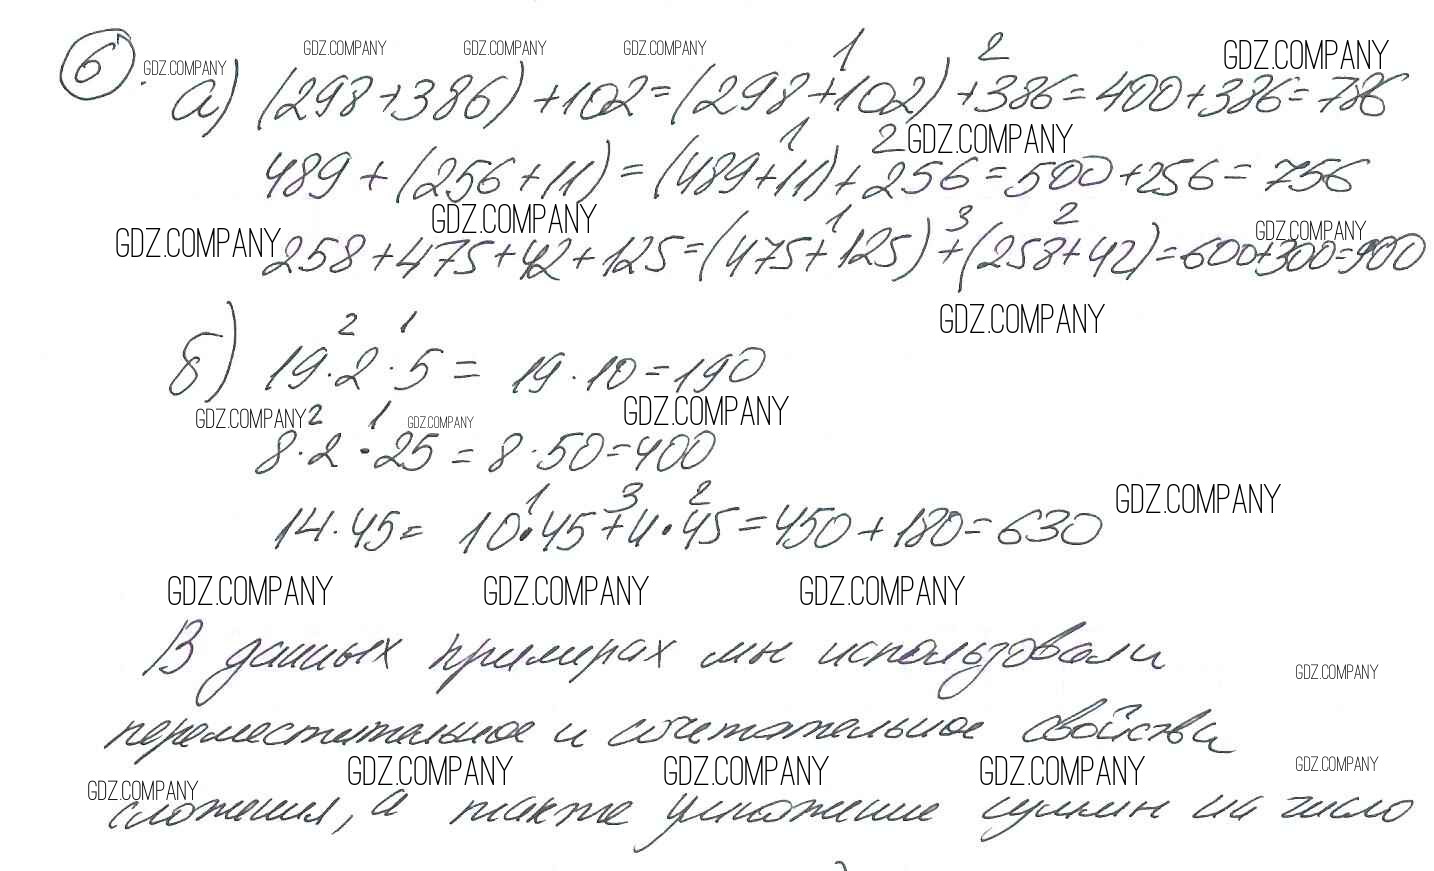 6.
GDZ.COMPANY GDZ.COMPANY GDZ.COMPANY GDZ.COMPANY GDZ.COMPANY
1 2
а) (298+386)+102=(298+102)+386=400+386=786
1 2 GDZ.COMPANY
489+(256+11)=(489+11)+256=500+256=756
GDZ.COMPANY 1 3 2 GDZ.COMPANY
GDZ.COMPANY 258+475+42+125=(475+125)+(258+42)=600+300=900
GDZ.COMPANY
2 1
б) 19·2·5= 19·10=190
GDZ.COMPANY 2 1 GDZ.COMPANY GDZ.COMPANY
8·2·25=8·50=400
1 3 2 GDZ.COMPANY
14·45= 10·45+4·45=450+180=630
GDZ.COMPANY GDZ.COMPANY GDZ.COMPANY
В данных примерах мы использовали
GDZ.COMPANY
переместительное и сочетательное свойства
GDZ.COMPANY GDZ.COMPANY GDZ.COMPANY GDZ.COMPANY
GDZ.COMPANY
сложения, а также умножение суммы на число